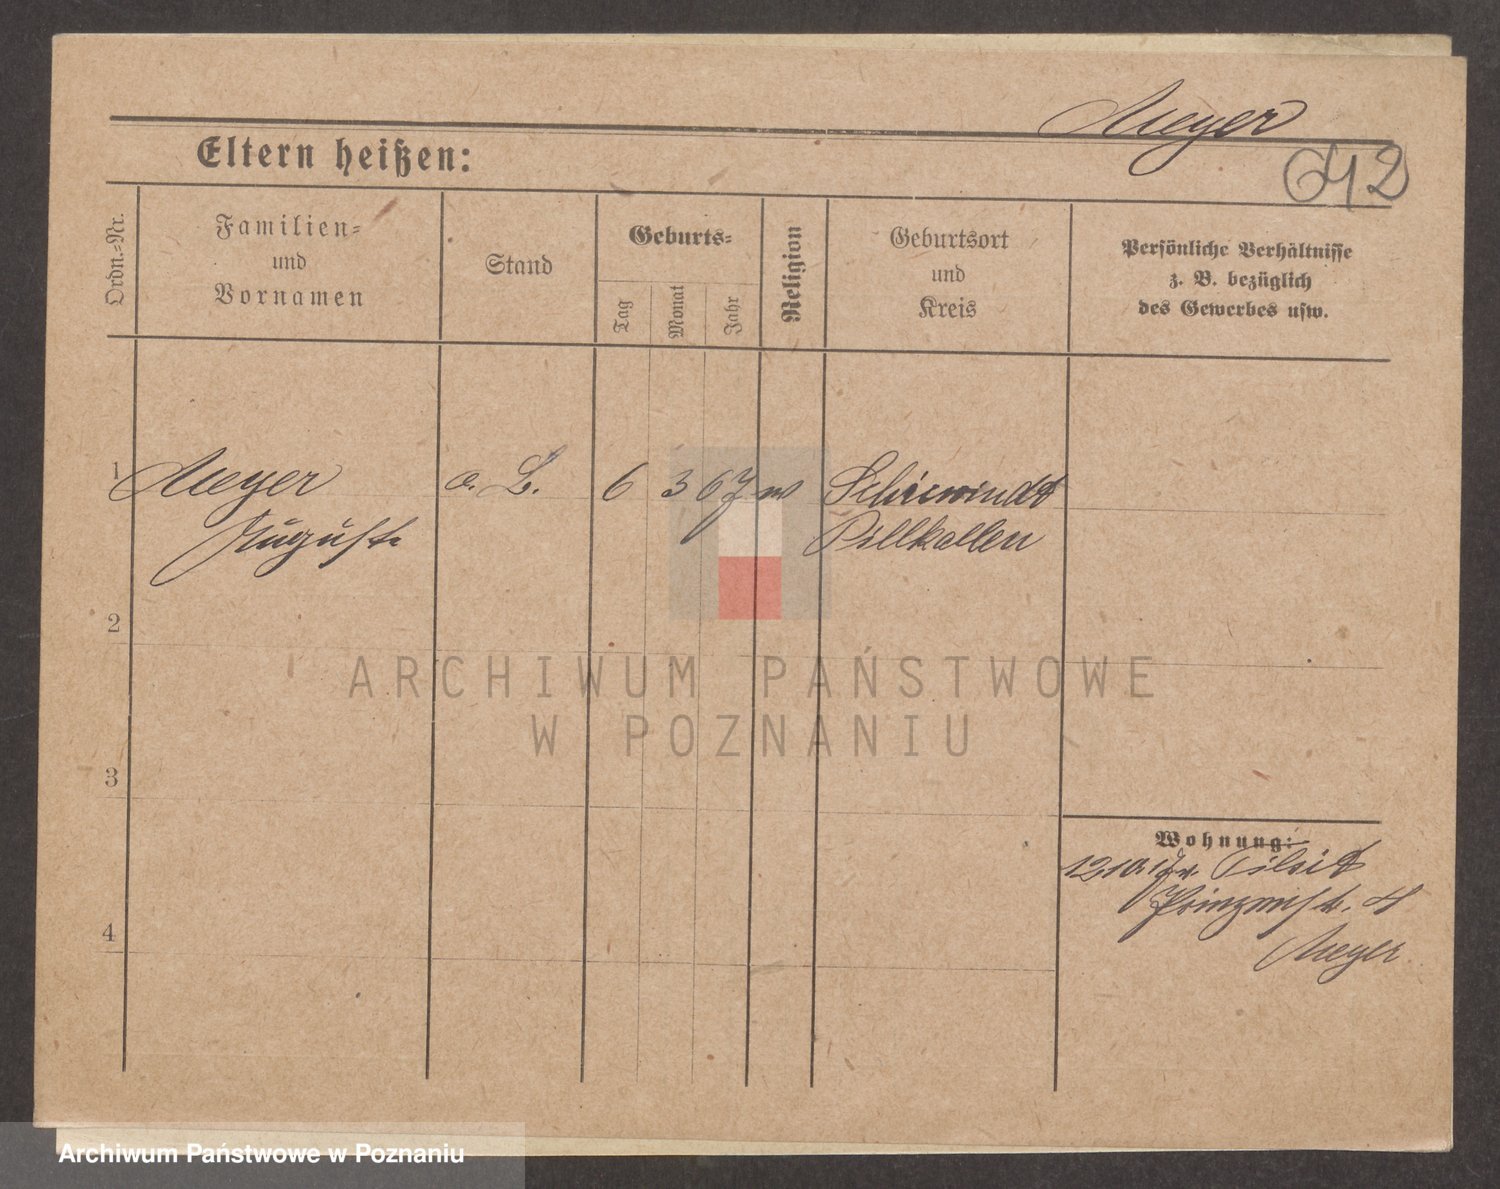 Meyer
642
Eltern heißen:
Ordn.-Nr.
Familien-
und
Vornamen
Stand
Geburts-
Tag
Monat
Jahr
Religion
Geburtsort
und
Kreis
Persönliche Verhältnisse
z. B. bezüglich
des Gewerbes usw.
1 Meyer o. L. 6 3 67 Schirwindt
Auguste Pillkallen
2
ARCHIWUM PAŃSTWOWE
W POZNANIU
3
Wohnung:
Tilsit
Prinzenstr. 4
Meyer
4
Archiwum Państwowe w Poznaniu